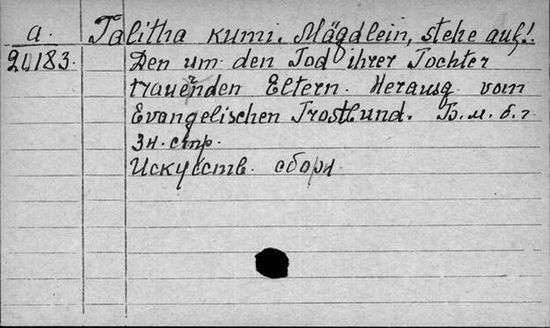 a. Talitha kumi. Mägdlein, stehe auf!
24183. Den um den Tod ihrer Tochter
trauernden Eltern. Herausg. vom
Evangelischen Trostbund. Б. м. б. г.
3 н. стр.
Искусств. сборн.